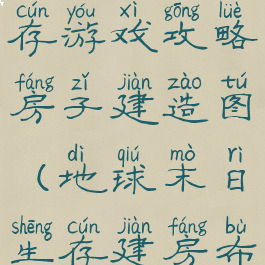 cún yóu xì gōng lüè
存游戏攻略
fáng zǐ jiàn zào tú
房子建造图
dì qiú mò rì
（地球末日
shēng cún jiàn fáng bù
生存建房布